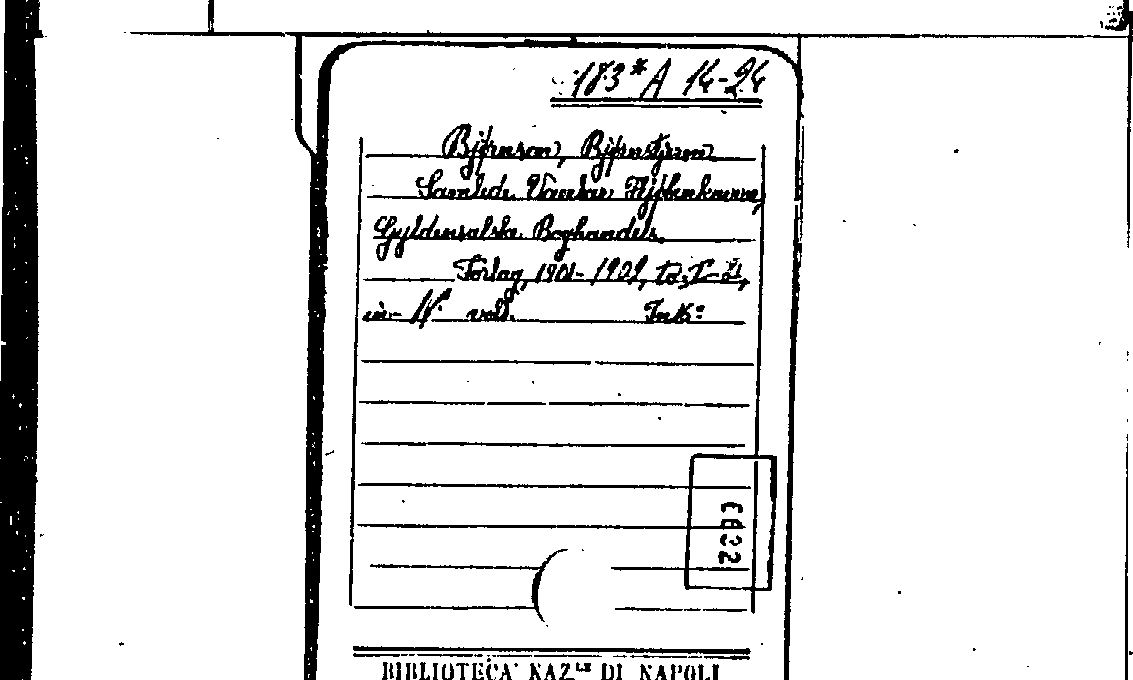 183* A 14-24
Bjørnson, Bjørnstjerne
Samlede Vaerker Kjøbenhavn,
Gyldenvalske Boghandels
Forlag, 1901-1902, to. I-
in- vol. In 16:
BIBLIOTECA NAZ.LE DI NAPOLI